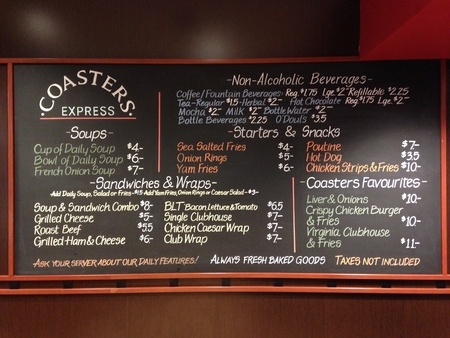 COASTERS
EXPRESS
-Non-Alcoholic Beverages-
Coffee/Fountain Beverages: Reg. $1.75 Lge. $2- Refillable $2.25
Tea-Regular $1.5 Herbal $2- Hot Chocolate Reg. $1.75 Lge. $2-
Mocha $2- Milk $2- Bottle Water $2-
Bottle Beverages $2.25 O'Doul's $3.5
-Soups-
Cup of Daily Soup $4-
Bowl of Daily Soup $6-
French Onion Soup $7-
-Starters & Snacks
Sea Salted Fries $4-
Onion Rings $5-
Yam Fries $6-
Poutine $7-
Hot Dog $3.5
Chicken Strips & Fries $10-
-Sandwiches & Wraps-
Add Daily Soup, Salad or Fries -$1.5 Add Yam Fries, Onion Rings or Caesar Salad -$3-
Soup & Sandwich Combo $8-
Grilled Cheese $5-
Roast Beef $5.5
Grilled Ham & Cheese $6-
BLT Bacon Lettuce & Tomato $6.5
Single Clubhouse $7-
Chicken Caesar Wrap $7-
Club Wrap $7-
-Coasters Favourites-
Liver & Onions $10-
Crispy Chicken Burger
& Fries $10-
Virginia Clubhouse
& Fries $11-
Ask your server about our Daily Features!
Always Fresh Baked Goods
Taxes not included